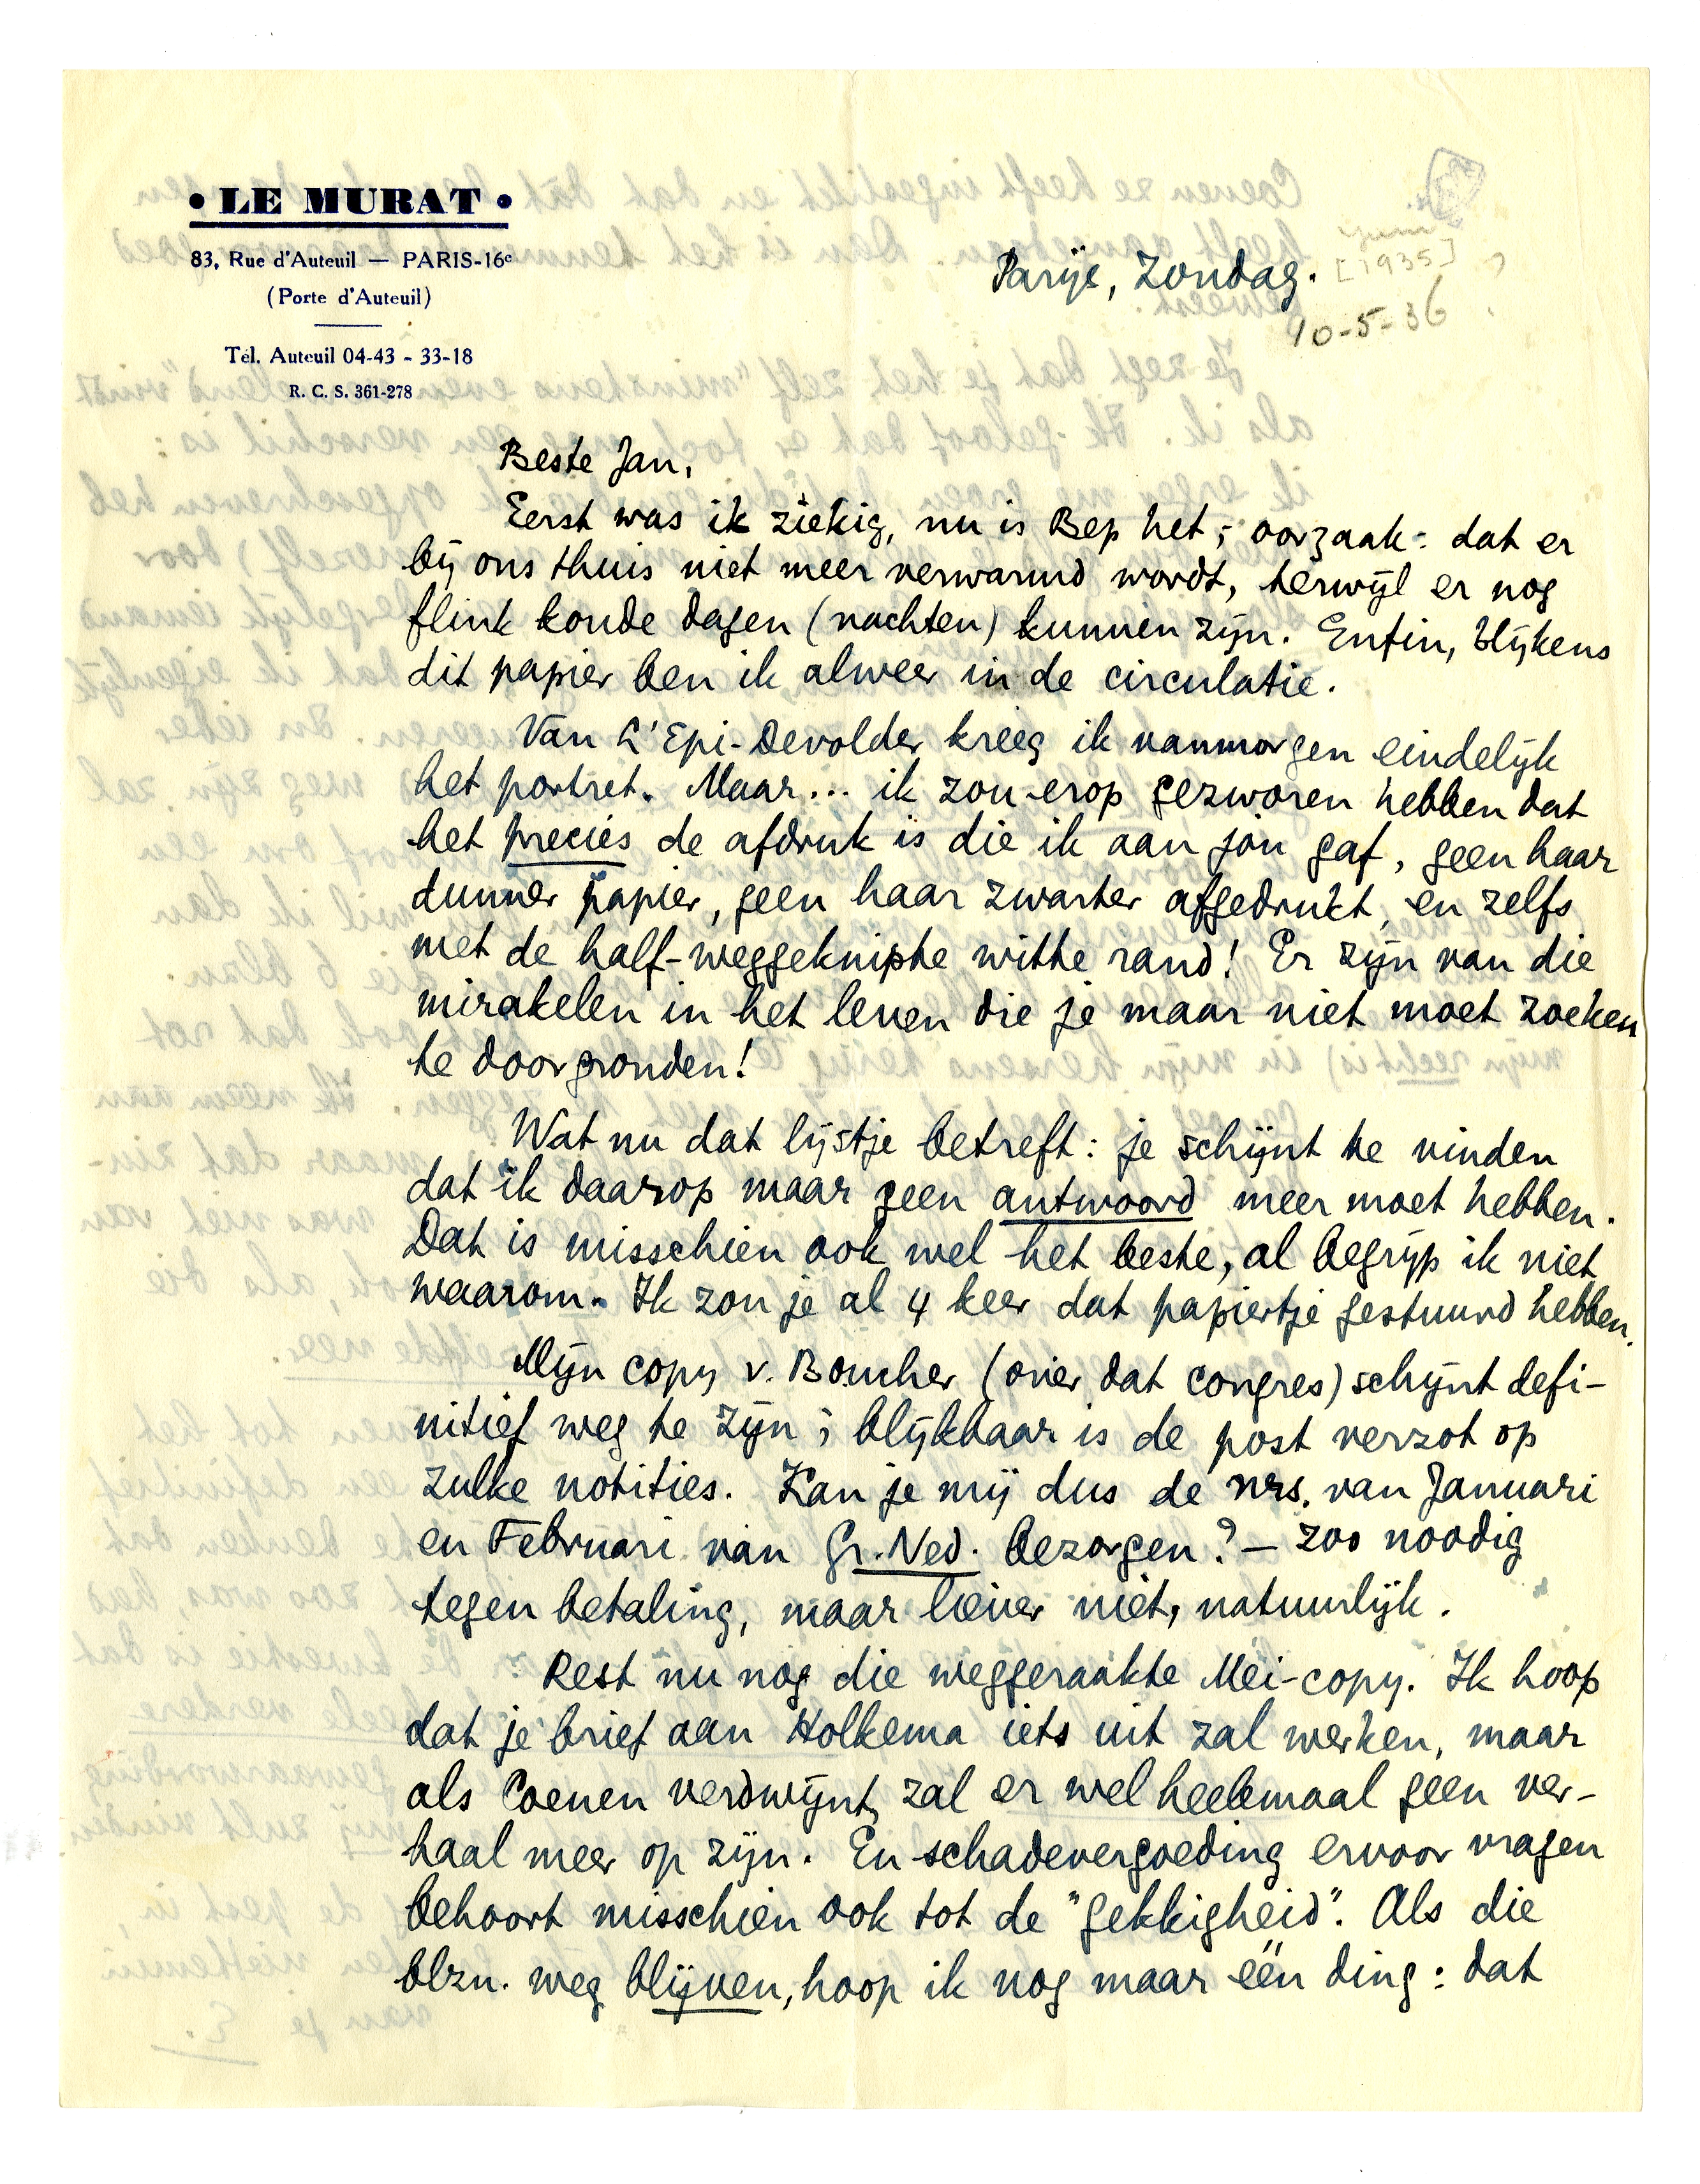 • LE MURAT •
83, Rue d'Auteuil — PARIS-16e
(Porte d'Auteuil)
Tél. Auteuil 04-43 - 33-18
R. C. S. 361-278
Parijs, Zondag.
[1935] ?
10-5-36
Beste Jan,
Eerst was ik ziekig, nu is Bep het; oorzaak: dat er
bij ons thuis niet meer verwarmd wordt, terwijl er nog
flink koude dagen (nachten) kunnen zijn. Enfin, blijkens
dit papier ben ik alweer in de circulatie.
Van L'Epi-Devolder kreeg ik vanmorgen eindelijk
het portret. Maar... ik zou erop gezworen hebben dat
het precies de afdruk is die ik aan jou gaf, geen haar
dunner papier, geen haar zwarter afgedrukt, en zelfs
met de half-weggeknipte witte rand! Er zijn van die
mirakelen in het leven die je maar niet moet zoeken
te doorgronden!
Wat nu dat lijstje betreft: je schijnt te vinden
dat ik daarop maar geen antwoord meer moet hebben.
Dat is misschien ook wel het beste, al begrijp ik niet
waarom. Ik zou je al 4 keer dat papiertje gestuurd hebben.
Mijn copy v. Boucher (over dat congres) schijnt defi-
nitief weg te zijn; blijkbaar is de post verzot op
zulke notities. Kan je mij dus de nrs. van Januari
en Februari van Gr. Ned. bezorgen? — zoo noodig
tegen betaling, maar liever niet, natuurlijk.
Rest nu nog die weggeraakte Mei-copy. Ik hoop
dat je brief aan Holkema iets uit zal werken, maar
als Coenen verdwijnt, zal er wel heelemaal geen ver-
haal meer op zijn. En schadevergoeding ervoor vragen
behoort misschien ook tot de "gekkigheid". Als die
blzn. weg blijven, hoop ik nog maar één ding: dat